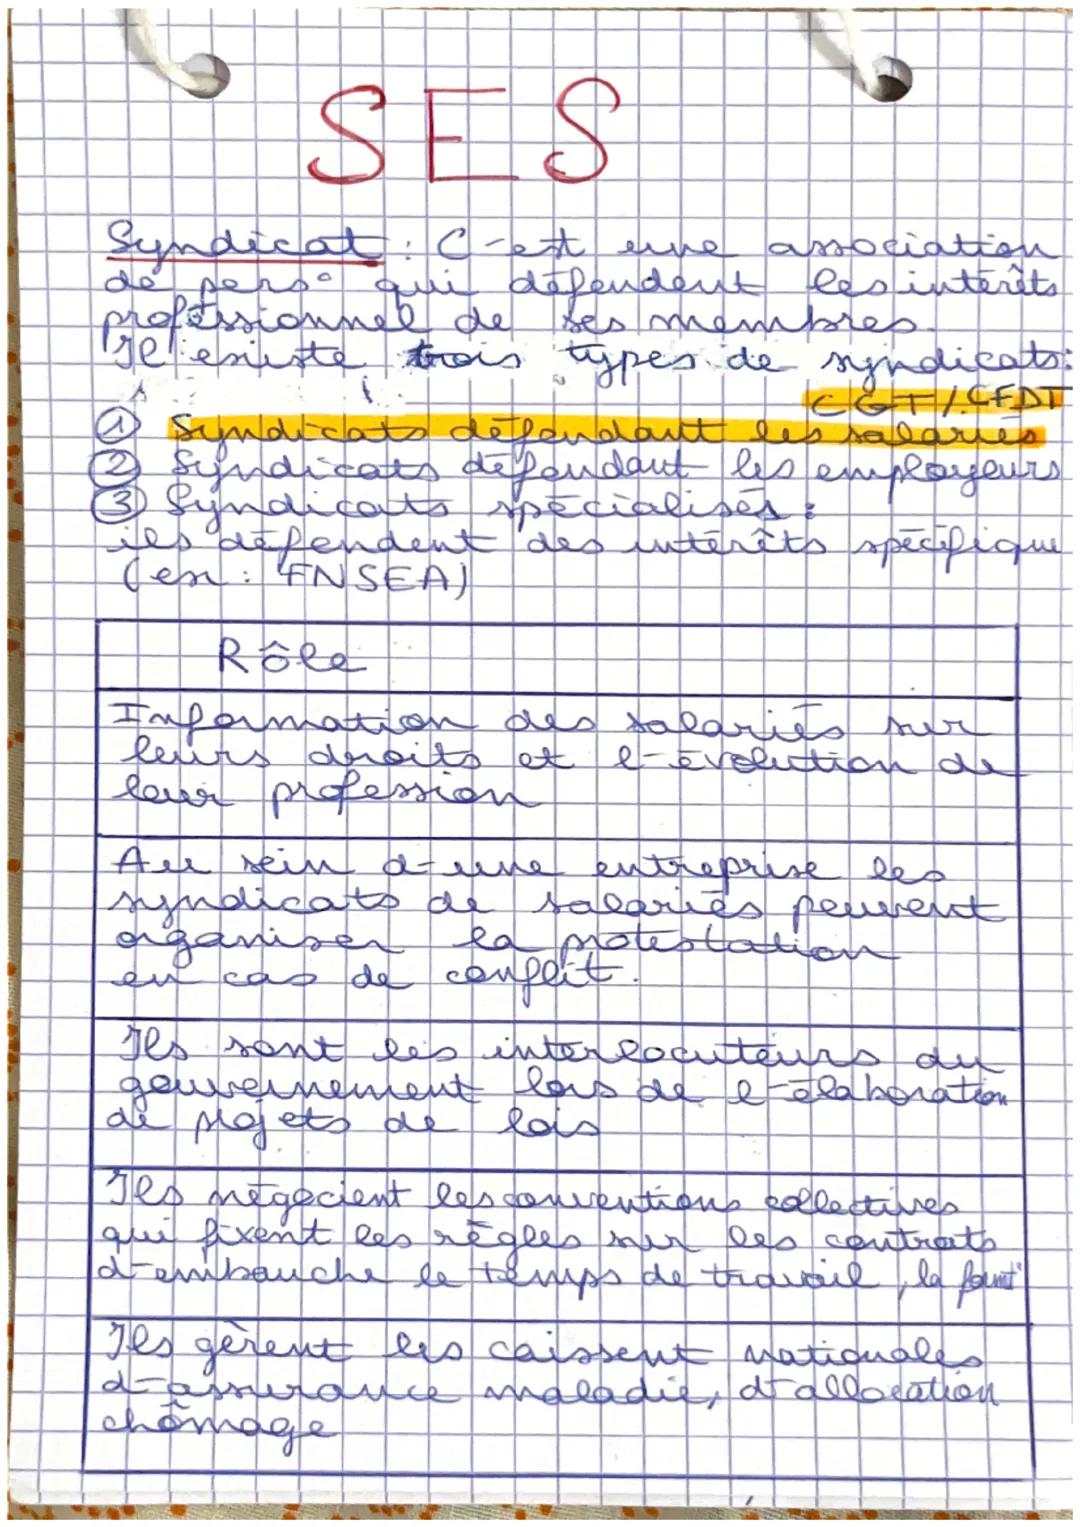 SES
Syndicat : C'est une association
de pers° qui défendent les intérêts
professionnel de ses membres.
Il existe trois types de syndicats:
CGT/CFDT
① Syndicats défendant les salariés
② Syndicats défendant les employeurs
③ Syndicats spécialisés :
ils défendent des intérêts spécifique
(ex : FNSEA)
Rôle
Information des salariés sur
leurs droits et l'évolution de
leur profession
Au sein d'une entreprise les
syndicats de salariés peuvent
organiser la protestation
en cas de conflit.
Ils sont les interlocuteurs du
gouvernement lors de l'élaboration
de projets de lois
Ils négocient les conventions collectives
qui fixent les règles sur les contrats
d'embauche le temps de travail, la
Ils gèrent les caissent nationales
d'assurance maladie, d'allocation
chômage